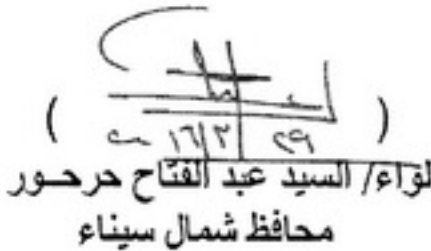 ( )
٢٩ ١٦/٣
لواء/ السيد عبد الفتاح حرحــور
محافظ شمال سيناء